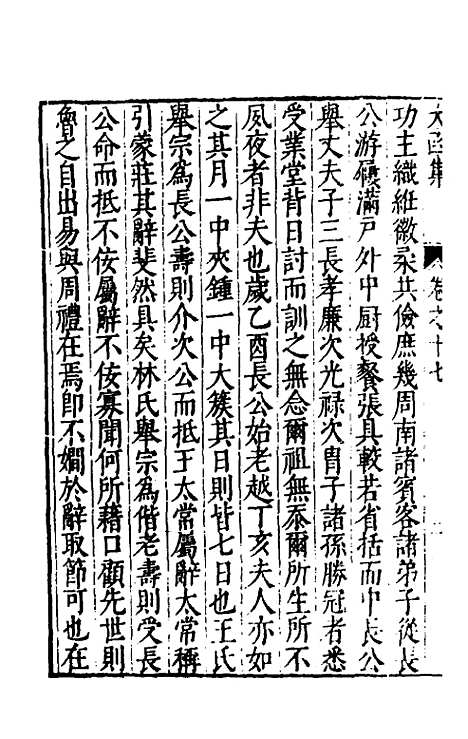 太函集 卷之十七
功主織維徽柔共儉庶幾周南諸賓客諸弟子從長
公游屨滿戶外中厨授餐張具較若省括而中長公
舉丈夫子三長孝廉次光祿次胄子諸孫勝冠者悉
受業堂背日討而訓之無念爾祖無忝爾所生所不
夙夜者非夫也歲乙酉長公始老越丁亥夫人亦如
之其月一中夾鍾一中大簇其日則皆七日也王氏
舉宗為長公壽則介次公而抵王太常屬辭太常稱
引蒙莊其辭斐然具矣林氏舉宗為偕老壽則受長
公命而抵不佞屬辭不佞寡聞何所藉口顧先世則
魯之自出易與周禮在焉卽不嫺於辭取節可也在